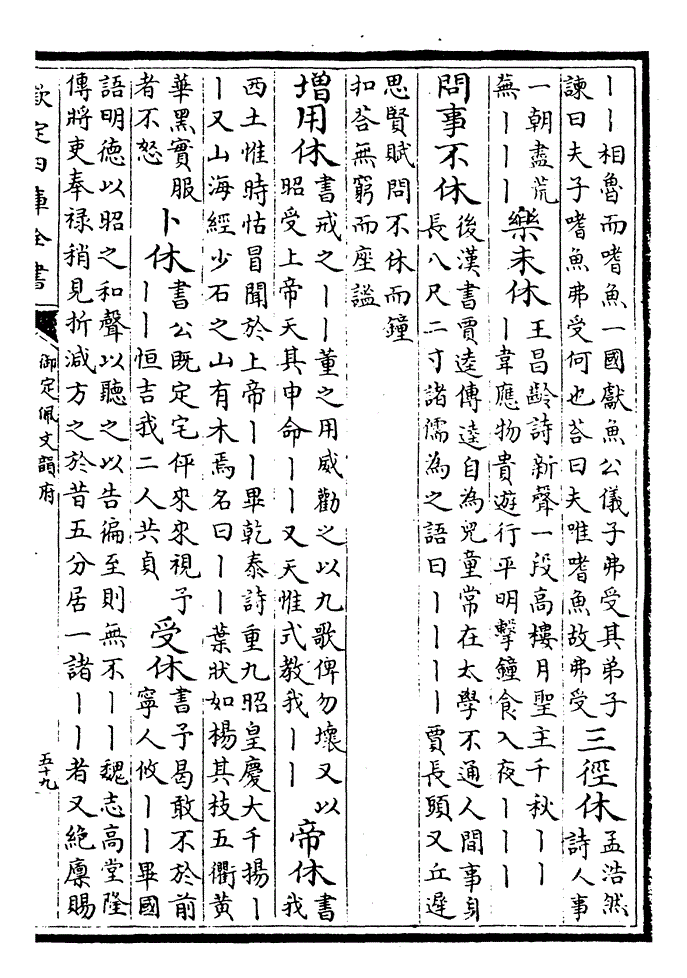 〡〡相魯而嗜魚一國獻魚公儀子弗受其弟子
諫曰夫子嗜魚弗受何也荅曰夫唯嗜魚故弗受
三徑休
孟浩然
詩人事
一朝盡荒
蕪〡〡〡
樂未休
王昌齡詩新聲一段高樓月聖主千秋〡〡
〡韋應物貴遊行平明擊鐘食入夜〡〡〡
問事不休
後漢書賈逵傳逵自為兒童常在太學不通人間事身
長八尺二寸諸儒為之語曰〡〡〡〡賈長頭又丘遲
思賢賦問不休而鐘
扣荅無窮而座謐
增用休
書戒之〡〡董之用威勸之以九歌俾勿壞又以
昭受上帝天其申命〡〡又天惟式教我〡〡
帝休
書
我
西土惟時怙冒聞於上帝〡〡畢乾泰詩重九昭皇慶大千揚〡
〡又山海經少石之山有木焉名曰〡〡葉狀如楊其枝五衢黃
華黑實服
者不怒
卜休
書公既定宅伻來來視予
〡〡恒吉我二人共貞
受休
書予曷敢不於前
寧人攸〡〡畢國
語明德以昭之和聲以聽之以告徧至則無不〡〡魏志高堂隆
傳將吏奉祿稍見折減方之於昔五分居一諸〡〡者又絕廩賜
欽定四庫全書
御定佩文韻府
五十九